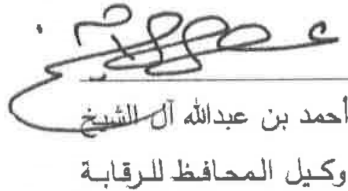 أحمد بن عبدالله آل الشيخ
وكيل المحافظ للرقابة